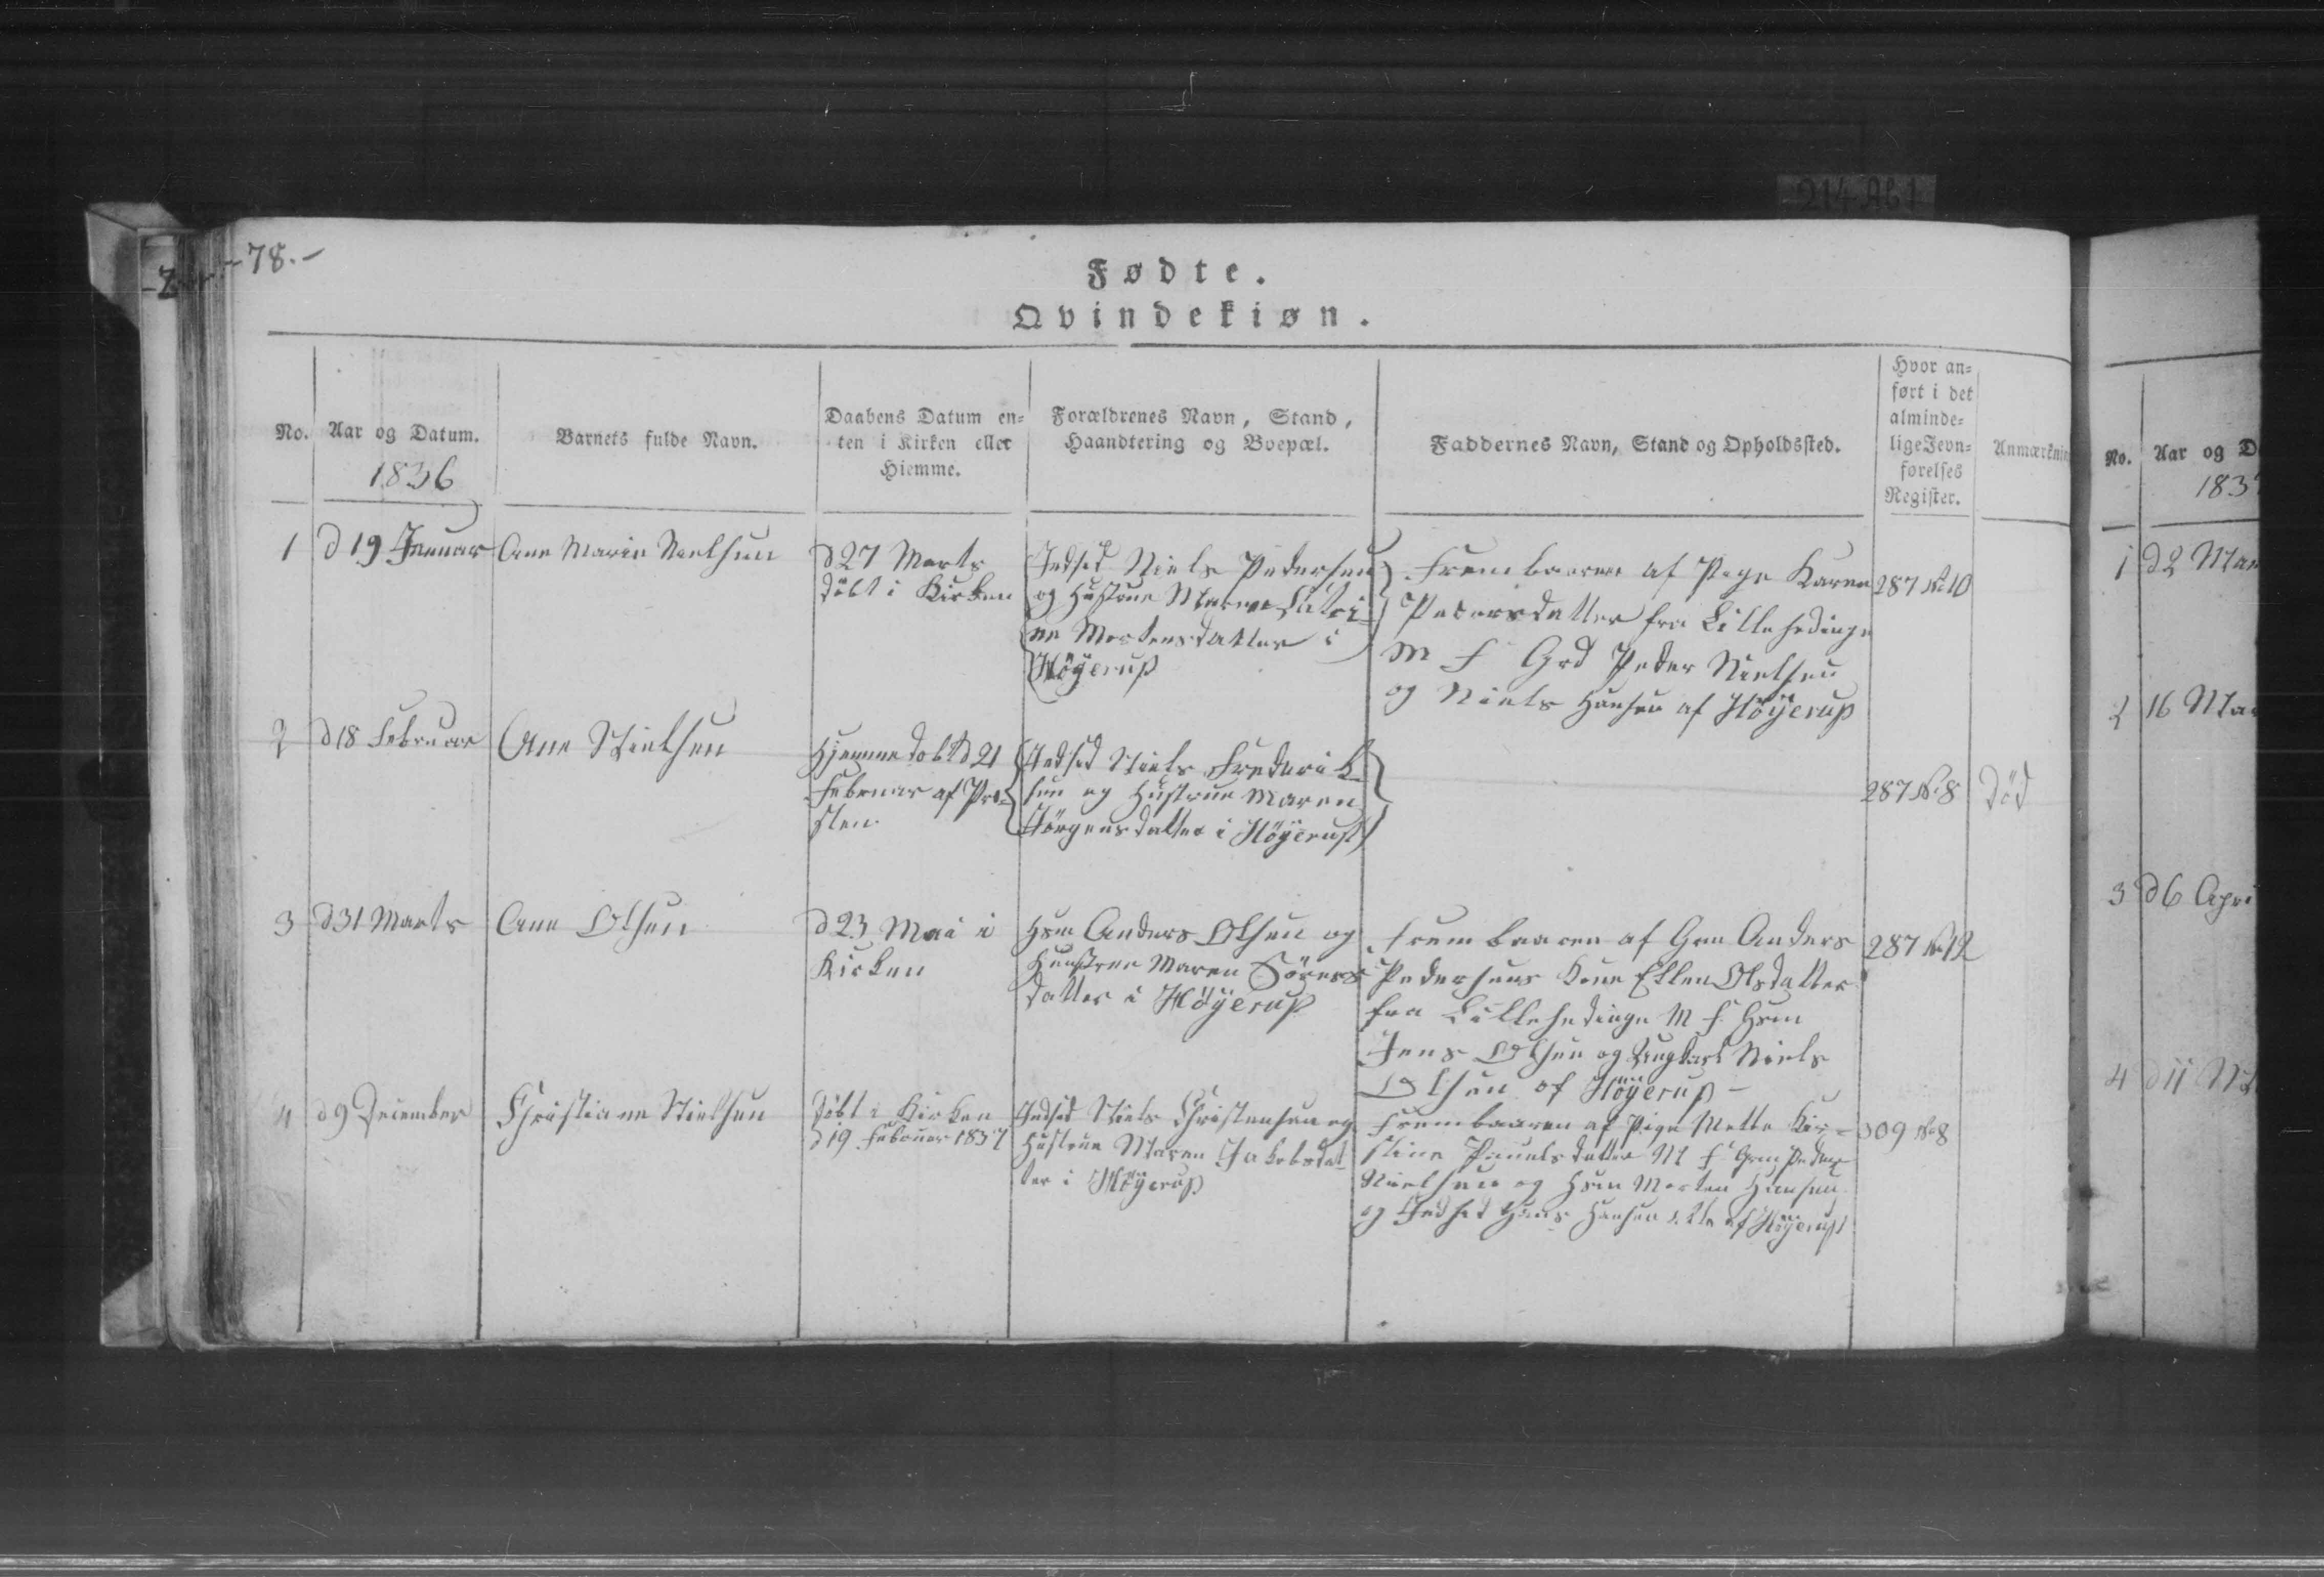 214 Ab 1
-78.-
Fødte.
Qvindekiøn.
No.
Aar og Datum.
1836
Barnets fulde Navn.
Daabens Datum en=
ten i Kirken eller
Hiemme.
Forældrenes Navn, Stand,
Haandtering og Boepæl.
Faddernes Navn, Stand og Opholdssted.
Hvor an=
ført i det
alminde=
lige Jevn=
førelses
Register.
Anmærknin
1
d 19 Januar
Ane Marie Nielsen
d 27 Marts
döbt i Kirken
Indsid Niels Pedersen
og Hustrue Maren Catri
ne Mortensdatter i
Höyerup
Frembaaren af Pige Karen
Pedersdatter fra Lillehedinge
M F Grd Peder Nielsen
og Niels Hansen af Höyerup
287 No 10
2
d 18 Februar
Ane Nielsen
Hjemmedobt d 21
Februar af Præ=
sten
Indsid Niels Frederik
sen og Hustrue Maren
Jörgensdatter i Höyerup
287 No 8
död
3
d 31 Marts
Ane Olsen
d 23 Mai i
Kirken
Hsm Anders Olsen og
Hustrue Maren Sörens
datter i Höyerup
Frembaaren af Grm Anders
Pedersens Kone Ellen Olsdatter
fra Lillehedinge M F Hsm
Jens Olsen og Ungkarl Niels
Olsen af Höyerup -
287 No 12
4
d 9 December
Christiane Nielsen
döbt i Kirken
d 19 Februar 1837
Indsid Niels Christensen og
Hustrue Maren Jakobsdat
ter i Höyerup
Frembaaren af Pige Mette Kir=
stine Pouelsdatter M F Grm Peder
Nielsen og Hsm Morten Hansen
og Indsid Hans Hansen af Höyerup
309 No 8
No.
Aar og D
183
1
d 2 Mar
2
16 Mar
3
d 6 Apri
4
d 11